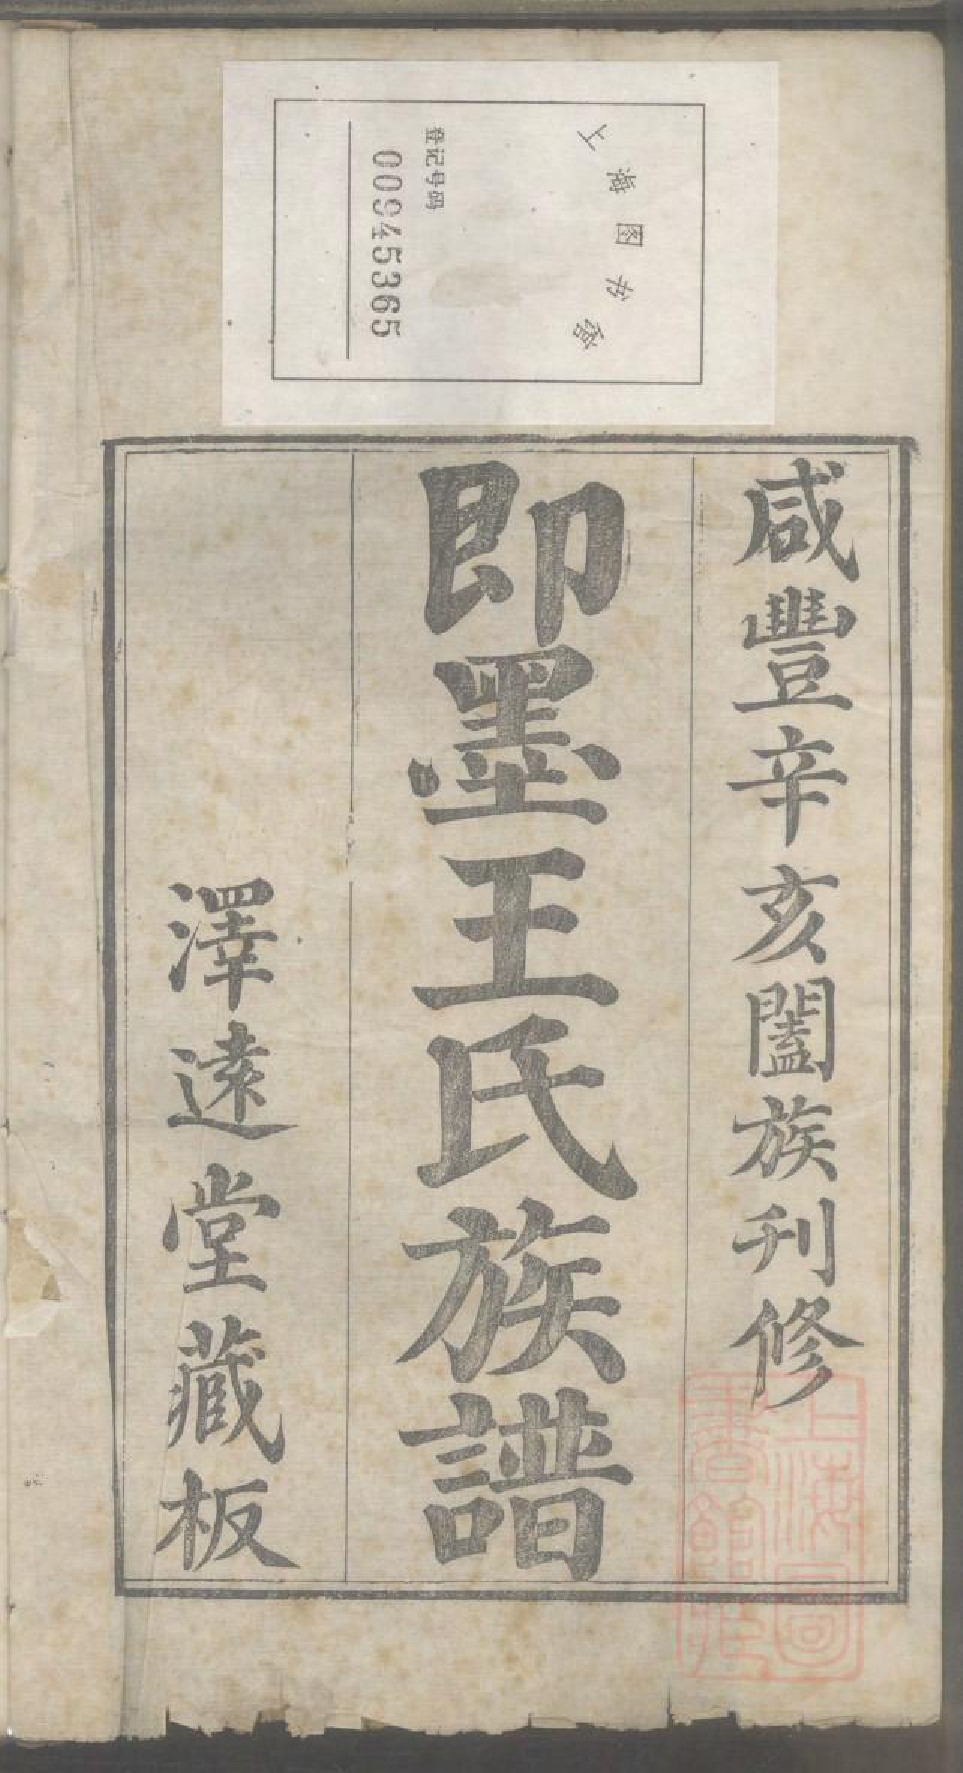 上海图书馆
登记号码
00945365
咸豐辛亥闔族刊修
即墨王氏族譜
澤遠堂藏板
上海圖
書館藏